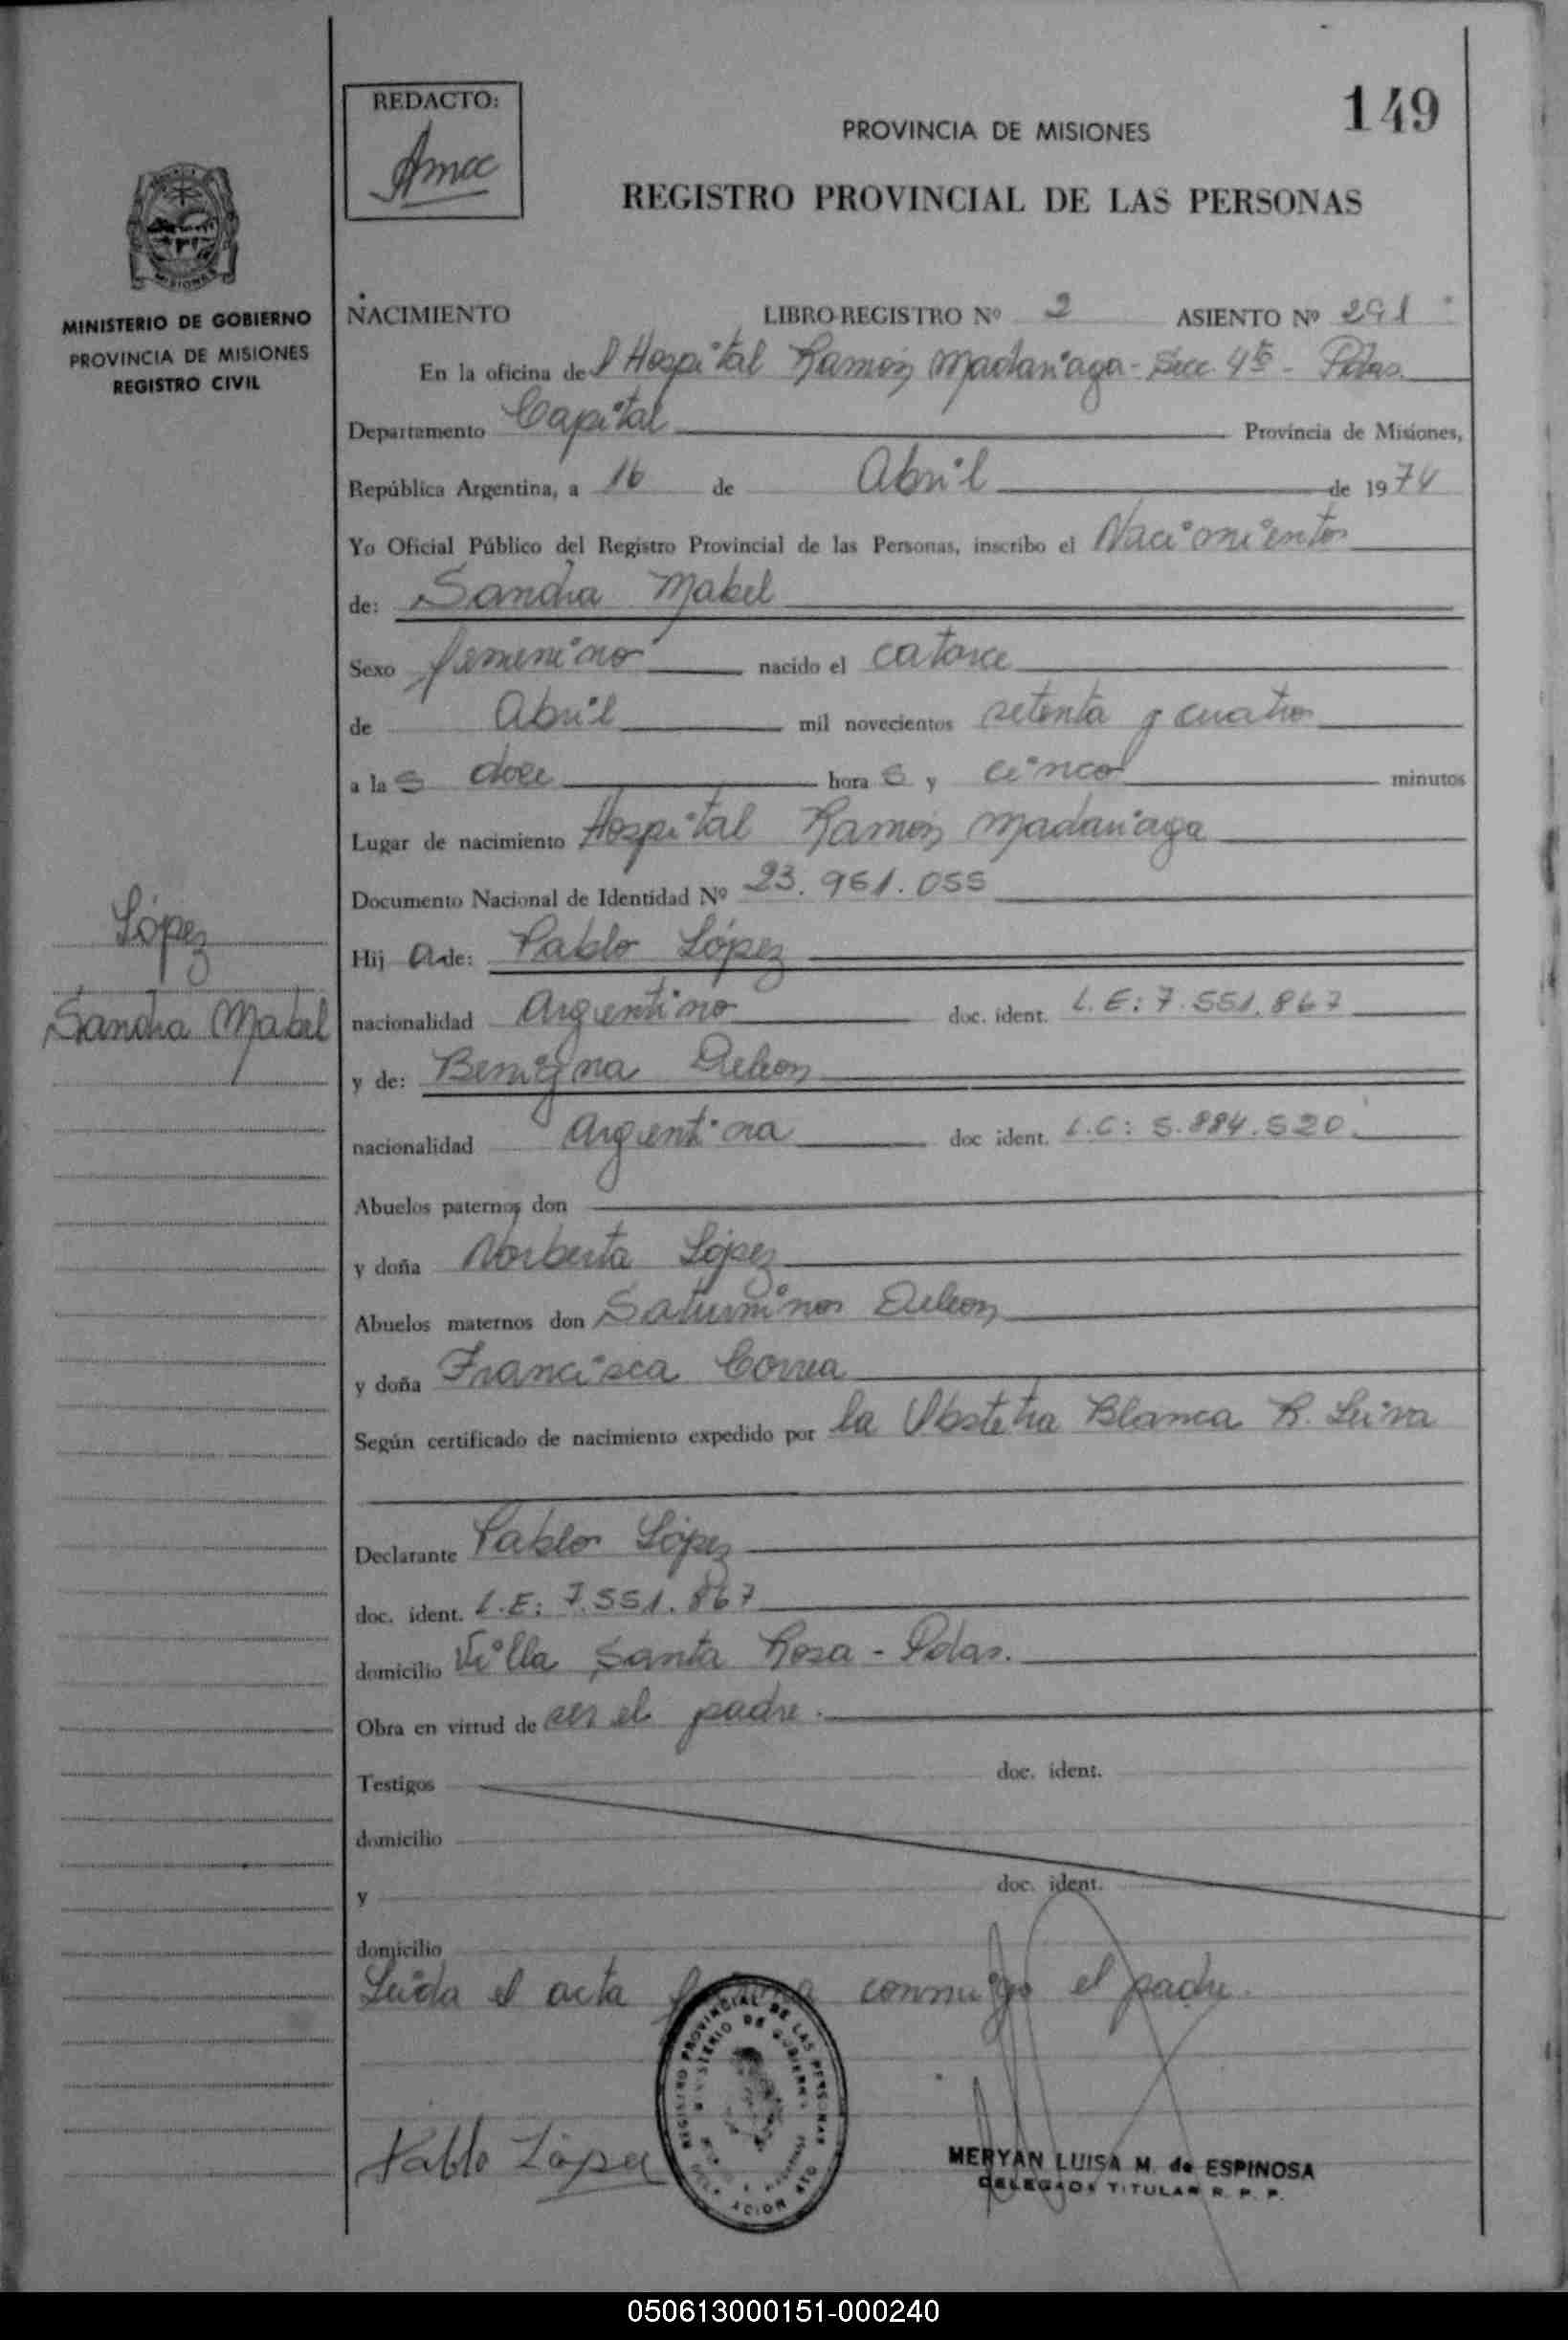 REDACTO:
149
PROVINCIA DE MISIONES
REGISTRO PROVINCIAL DE LAS PERSONAS
MISIONES
MINISTERIO DE GOBIERNO
PROVINCIA DE MISIONES
REGISTRO CIVIL
NACIMIENTO LIBRO REGISTRO Nº 2 ASIENTO Nº 291
En la oficina del Hospital Ramón Madariaga - Secc. 4ta - Pdas.
Departamento Capital Provincia de Misiones,
República Argentina, a 16 de Abril de 1974
Yo Oficial Público del Registro Provincial de las Personas, inscribo el Nacimiento
de: Sandra Mabel
Sexo femenino nacido el catorce
de Abril mil novecientos setenta y cuatro
a las doce horas y cinco minutos
Lugar de nacimiento Hospital Ramón Madariaga
Documento Nacional de Identidad Nº 23.951.055
López
Sandra Mabel
Hija de: Pablo López
nacionalidad Argentino doc. ident. L.E: 7.551.867
y de: Benigna Deleon
nacionalidad Argentina doc ident. L.C: 5.884.520
Abuelos paternos don
y doña Norberta López
Abuelos maternos don Saturnino Deleon
y doña Francisca Correa
Según certificado de nacimiento expedido por la Obstetra Blanca R. Leiva
Declarante Pablo López
doc. ident. L.E: 7.551.867
domicilio Villa Santa Rosa - Pdas.
Obra en virtud de ser el padre.
Testigos doc. ident.
domicilio
y doc. ident.
domicilio
Leida el acta firma conmigo el padre.
REGISTRO PROVINCIAL DE LAS PERSONAS
MINISTERIO DE GOBIERNO
Pablo López
MERYAN LUISA M. de ESPINOSA
DELEGADA TITULAR R. P. P.
050613000151-000240